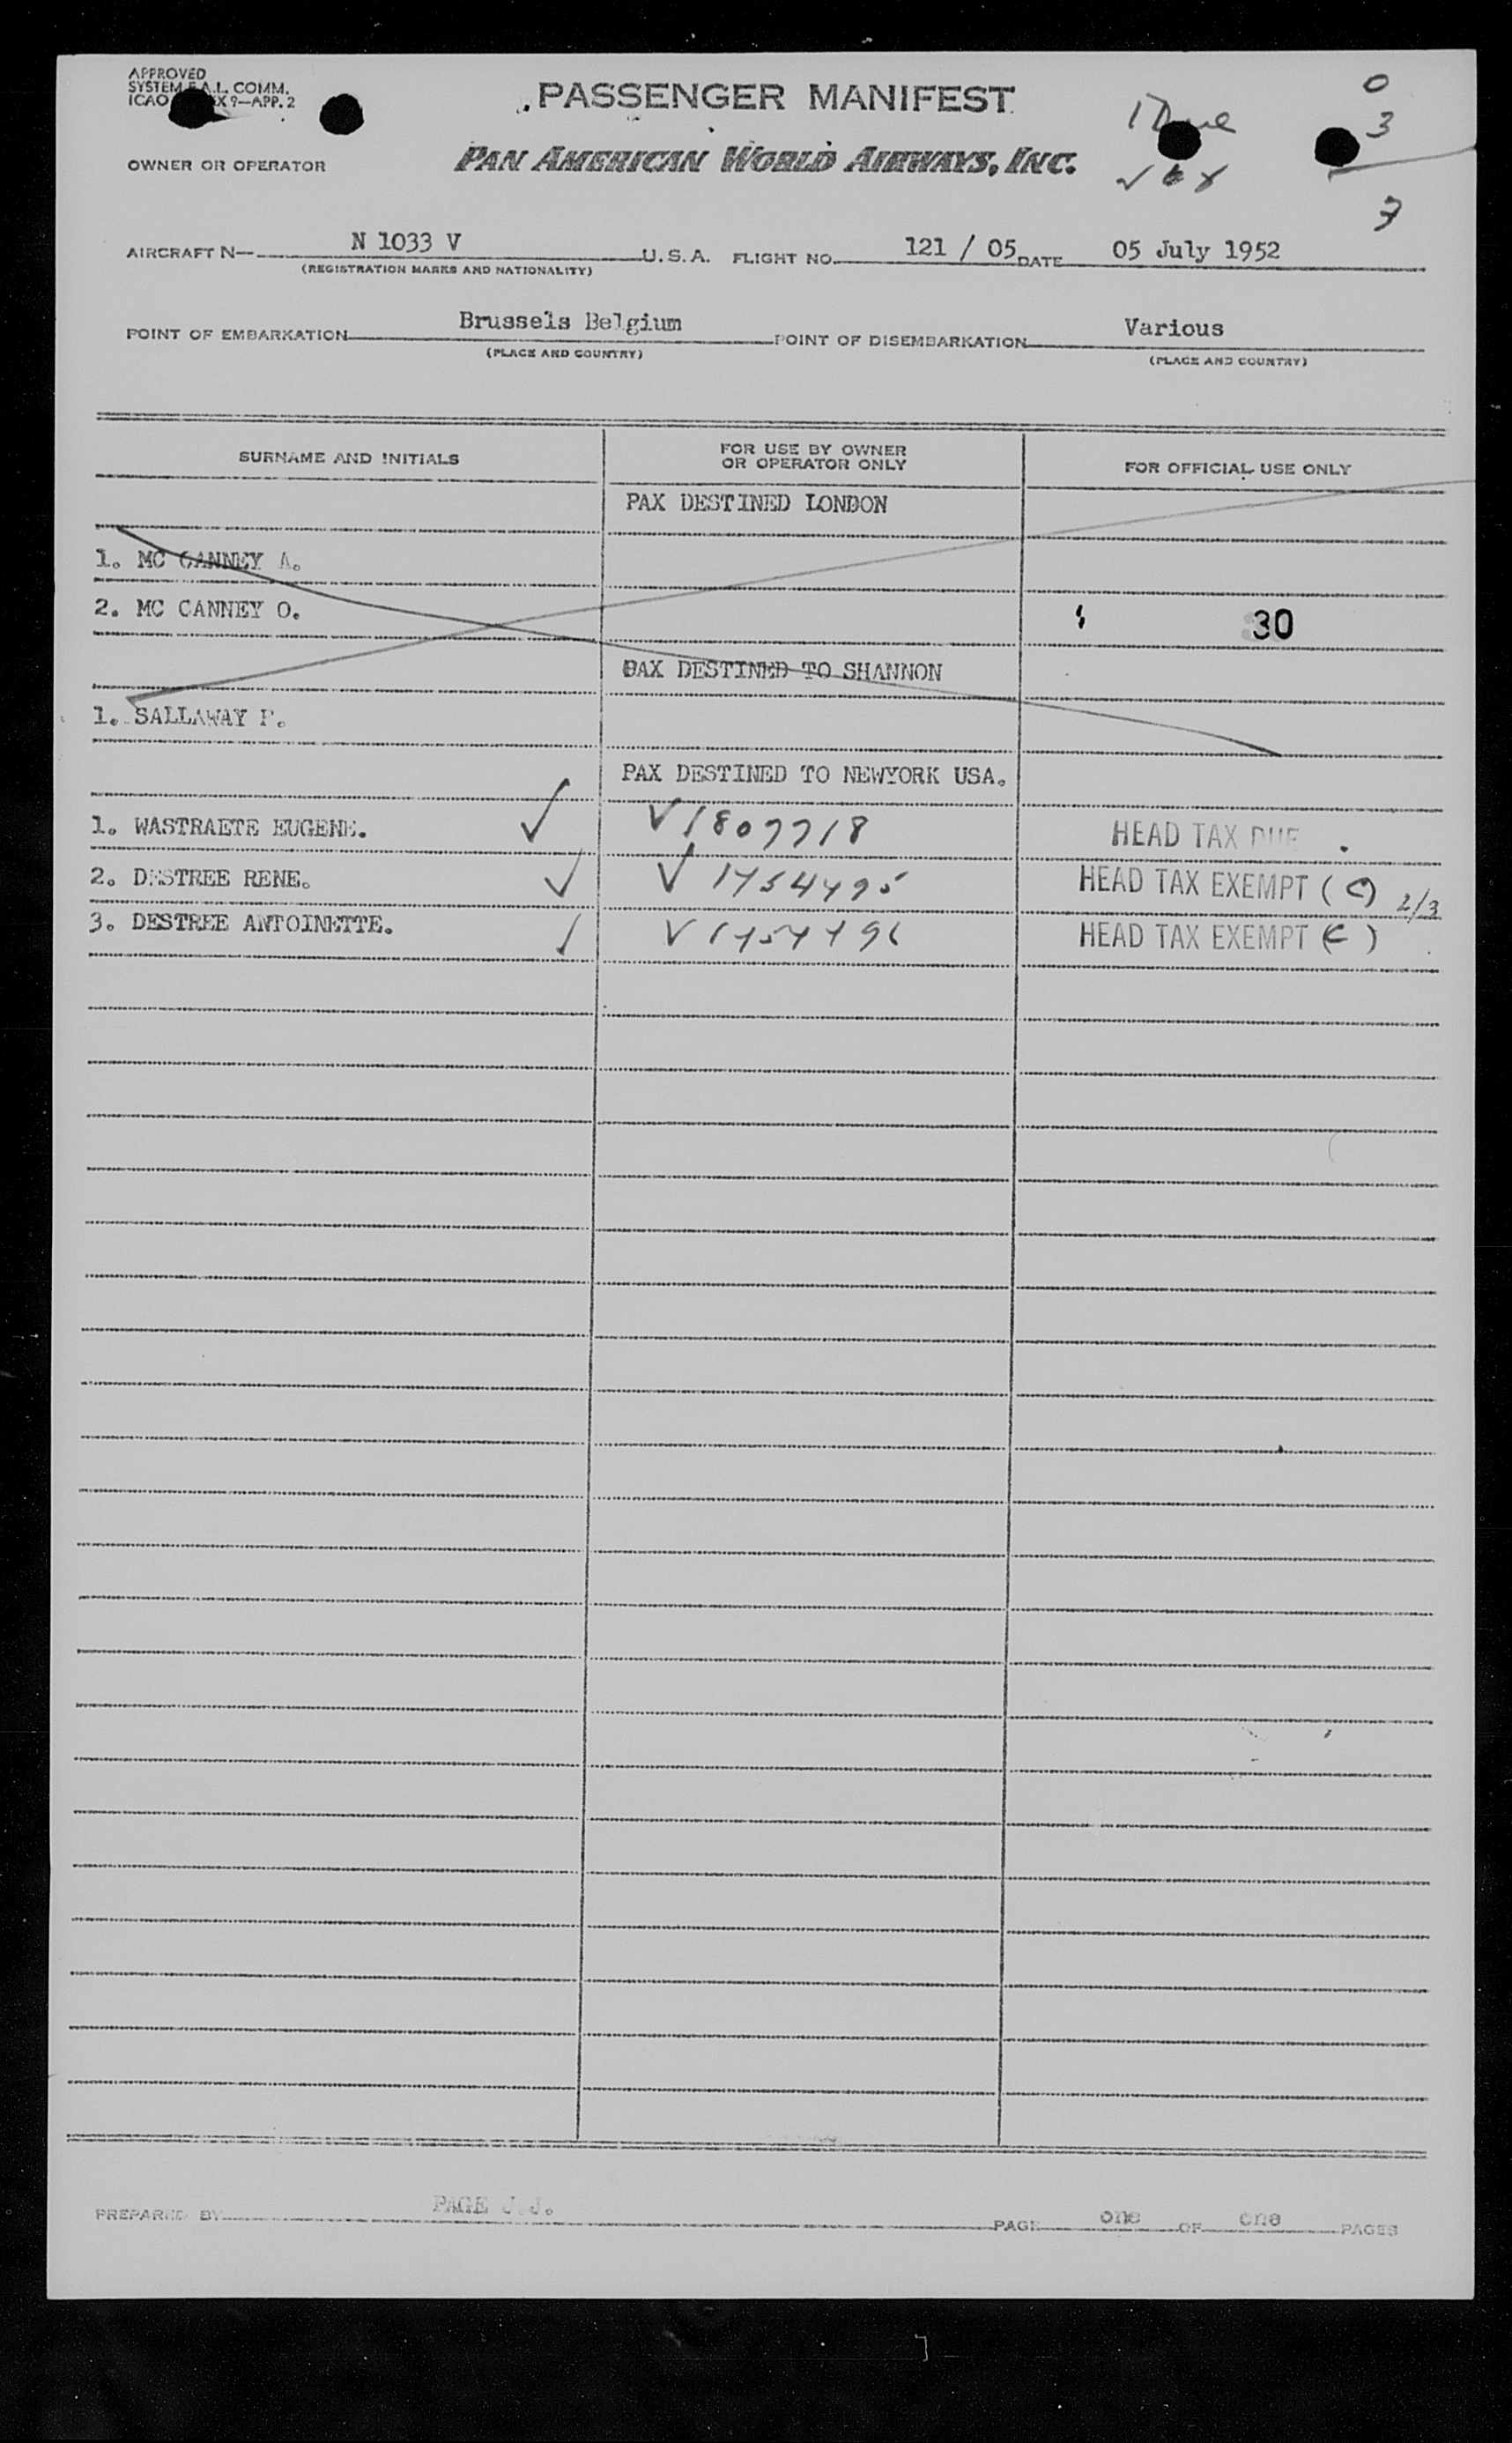 APPROVED
SYSTEM F.A.L. COMM.
ICAO X 9—APP. 2
PASSENGER MANIFEST
OWNER OR OPERATOR PAN AMERICAN WORLD AIRWAYS, INC.
0
3
3
AIRCRAFT N— N 1033 V U.S.A. FLIGHT NO. 121 / 05 DATE 05 July 1952
(REGISTRATION MARKS AND NATIONALITY)
POINT OF EMBARKATION Brussels Belgium POINT OF DISEMBARKATION Various
(PLACE AND COUNTRY) (PLACE AND COUNTRY)
SURNAME AND INITIALS FOR USE BY OWNER OR OPERATOR ONLY FOR OFFICIAL USE ONLY
PAX DESTINED LONDON
1. MC CANNEY A.
2. MC CANNEY O. 30
PAX DESTINED TO SHANNON
1. SALLAWAY P.
PAX DESTINED TO NEWYORK USA.
1. WASTRAETE EUGENE. ✓ V1807718 HEAD TAX DUE
2. DESTREE RENE. ✓ V 1454495 HEAD TAX EXEMPT (C) 2/3
3. DESTREE ANTOINETTE. ✓ V1454496 HEAD TAX EXEMPT (C)
PREPARED BY PAGE J.J. PAGE one OF one PAGES